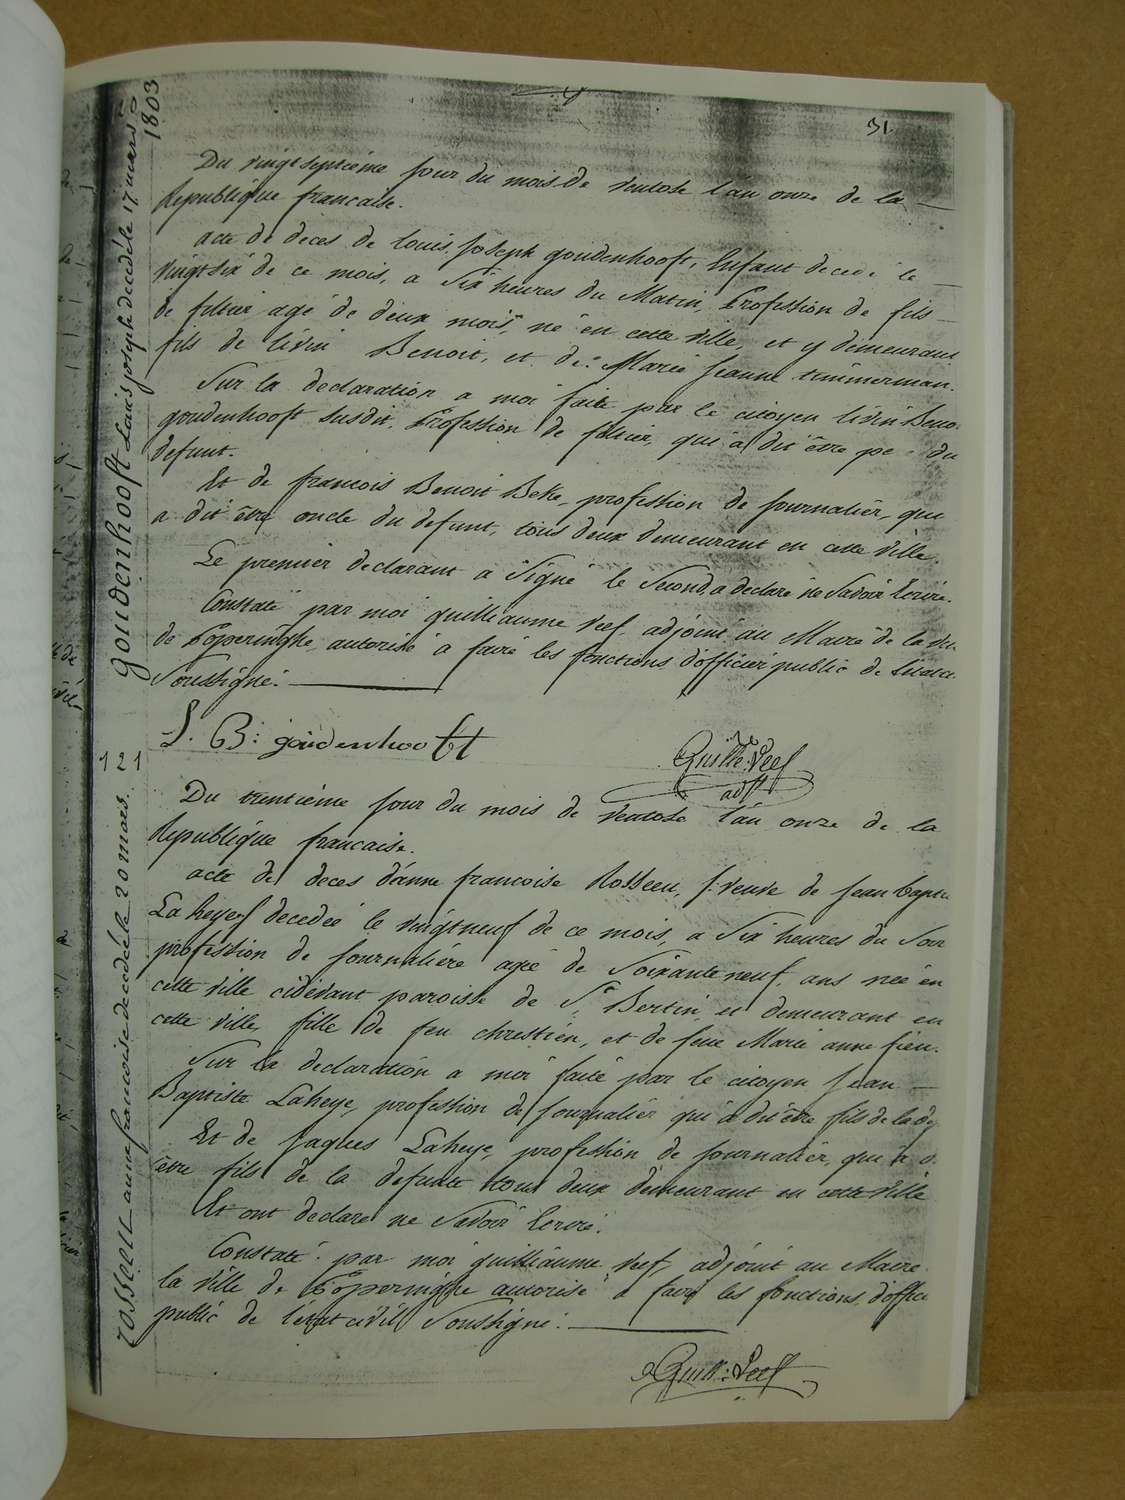 31
goudenhooft Louis joseph decedé le 17 mars
1803
Du vingt septiéme jour du mois de ventose l'an onze de la
Republique francaise.
acte de deces de louis joseph goudenhooft, Enfant decedé le
vingtsix de ce mois, a Six heures du Matin, Profession de fils
de filtier agé de deux mois, né en cette ville, et y demeurant
fils de livin Benoit, et de Marie jeanne timmerman.
Sur la declaration a moi faite par le citoyen livin Beno
goudenhooft susdit, Profession de filtier, qui a dit être pe du
defunt.
Et de francois Benoit Beke, profession de journalier, qui
a dit être oncle du defunt, tous deux demeurant en cette ville.
Le premier declarant a Signé le Second a declaré ne Savoir Ecrire.
Constaté par moi guilliaume Veef, adjoint au Maire de la
de Poperinghe autorisé a faire les fonctions d'officier public de
Soussigné.
L. B: goudenhooft
Guille: Veef
adjt
121
rosseeu anne francoise decedé le 20 mars.
Du trentiéme jour du mois de ventose l'an onze de la
Republique francaise.
acte de deces d'anne francoise Rosseeu, veuve de jean bapti
Laheye decedée le vingtneuf de ce mois, a Six heures du Soir
profession de journaliére agée de Soixante neuf ans née en
cette ville cidevant paroisse de St Bertin, et demeurant en
cette ville, fille de feu chrestien, et de feue Marie anne fieu.
Sur la declaration a moi faite par le citoyen jean
Baptiste Laheye, profession de journalier qui a dit être fils de la
Et de jaques Laheye, profession de journalier, qui a d
être fils de la defunte tous deux demeurant en cette ville
Et ont declaré ne Savoir Ecrire.
Constaté par moi guilliaume Veef, adjoint au Maire
la ville de Poperinghe autorisé a faire les fonctions d'offici
public de l'état civil Soussigné.
Guill: Veef